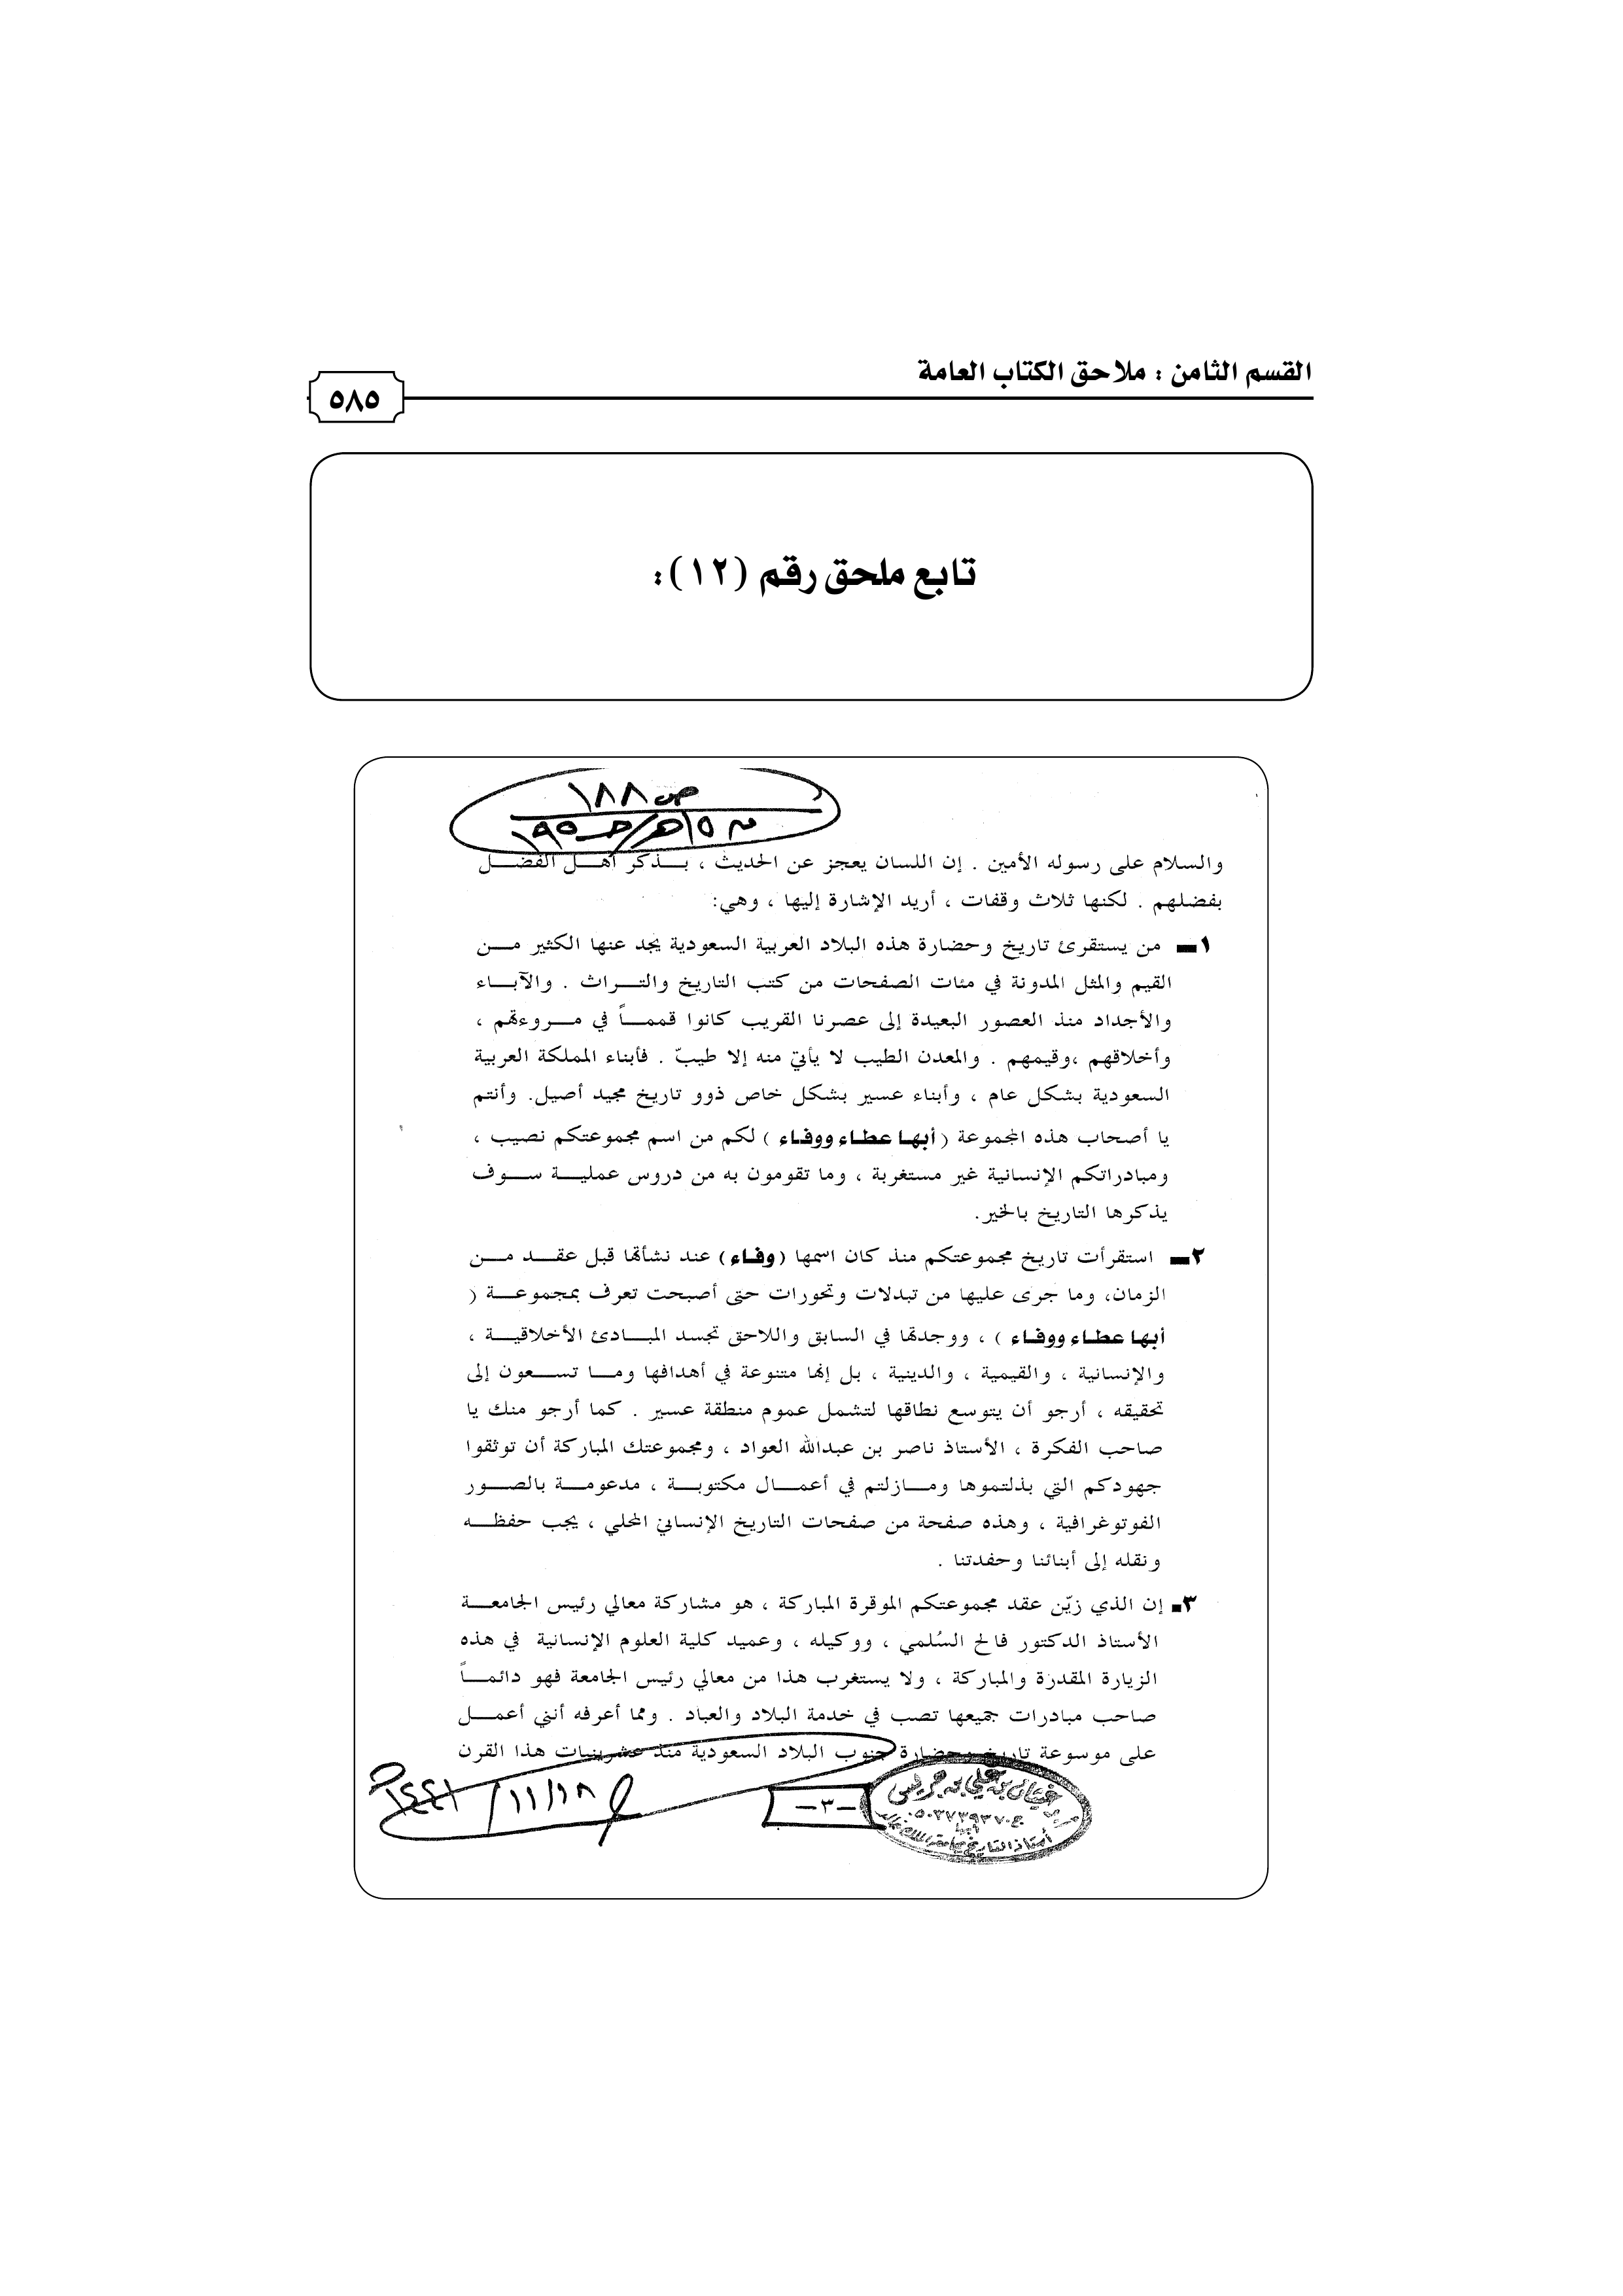 القسم الثامن : ملاحق الكتاب العامة
٥٨٥
تابع ملحق رقم (١٢):
ص ١٨٨
والسلام على رسوله الأمين . إن اللسان يعجز عن الحديث ، بـــذكر أهـــل الفضـــل
بفضلهم . لكنها ثلاث وقفات ، أريد الإشارة إليها ، وهي:
١ــ من يستقرئ تاريخ وحضارة هذه البلاد العربية السعودية يجد عنها الكثير مـــن
القيم والمثل المدونة في مئات الصفحات من كتب التاريخ والتـــراث . والآبـــاء
والأجداد منذ العصور البعيدة إلى عصرنا القريب كانوا قممـــاً في مـــروءتهم ،
وأخلاقهم ،وقيمهم . والمعدن الطيب لا يأتي منه إلا طيبّ . فأبناء المملكة العربية
السعودية بشكل عام ، وأبناء عسير بشكل خاص ذوو تاريخ مجيد أصيل. وأنتم
يا أصحاب هذه المجموعة (أبها عطاء ووفاء ) لكم من اسم مجموعتكم نصيب ،
ومبادراتكم الإنسانية غير مستغربة ، وما تقومون به من دروس عمليـــة ســـوف
يذكرها التاريخ بالخير.
٢ــ استقرأت تاريخ مجموعتكم منذ كان اسمها (وفاء) عند نشأتها قبل عقـــد مـــن
الزمان، وما جرى عليها من تبدلات وتحورات حتى أصبحت تعرف بمجموعـــة (
أبها عطاء ووفاء ) ، ووجدتها في السابق واللاحق تجسد المبـــادئ الأخلاقيـــة ،
والإنسانية ، والقيمية ، والدينية ، بل إنها متنوعة في أهدافها ومـــا تســـعون إلى
تحقيقه ، أرجو أن يتوسع نطاقها لتشمل عموم منطقة عسير . كما أرجو منك يا
صاحب الفكرة ، الأستاذ ناصر بن عبدالله العواد ، ومجموعتك المباركة أن توثقوا
جهودكم التي بذلتموها ومـــازلتم في أعمـــال مكتوبـــة ، مدعومـــة بالصـــور
الفوتوغرافية ، وهذه صفحة من صفحات التاريخ الإنساني المحلي ، يجب حفظـــه
ونقله إلى أبنائنا وحفدتنا .
٣ـ إن الذي زيّن عقد مجموعتكم الموقرة المباركة ، هو مشاركة معالي رئيس الجامعـــة
الأستاذ الدكتور فالح السُلمي ، ووكيله ، وعميد كلية العلوم الإنسانية في هذه
الزيارة المقدرة والمباركة ، ولا يستغرب هذا من معالي رئيس الجامعة فهو دائمـــاً
صاحب مبادرات جميعها تصب في خدمة البلاد والعباد . ومما أعرفه أنني أعمـــل
على موسوعة تاريخ وحضارة جنوب البلاد السعودية منذ عشرينيات هذا القرن
غيثان بن علي بن جريس
أستاذ التاريخ
–٣–
١٨/١١/١٤٤١